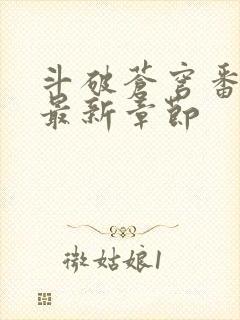 斗破苍穹番
最新章节
微姑娘1